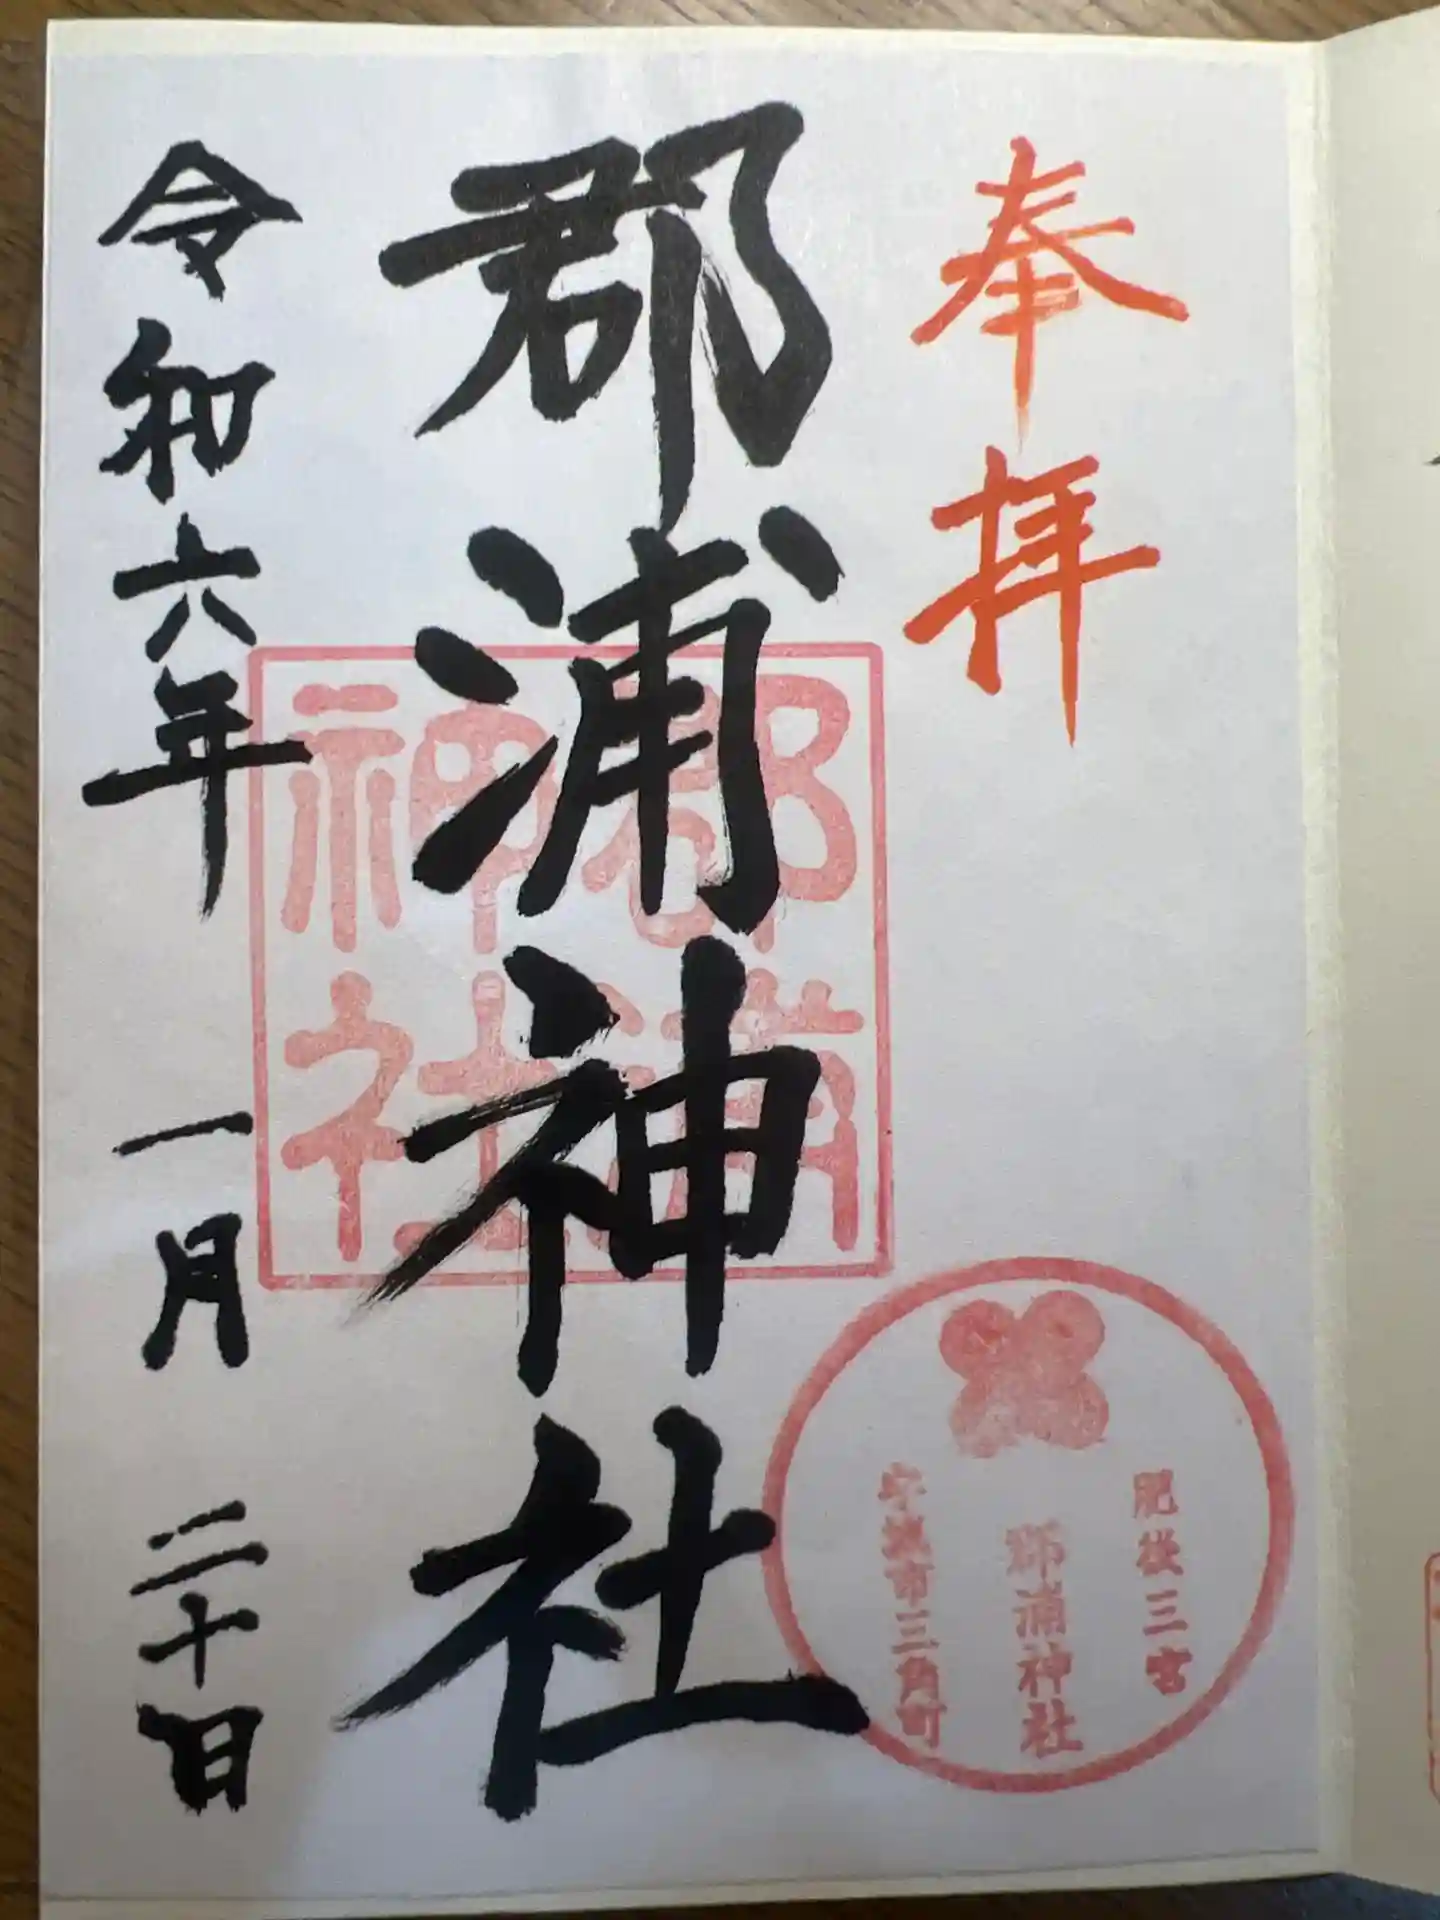 奉拝
肥後三宮
郡浦神社
宇城市三角町
郡浦神社
郡浦
神社
令和六年 一月 二十日